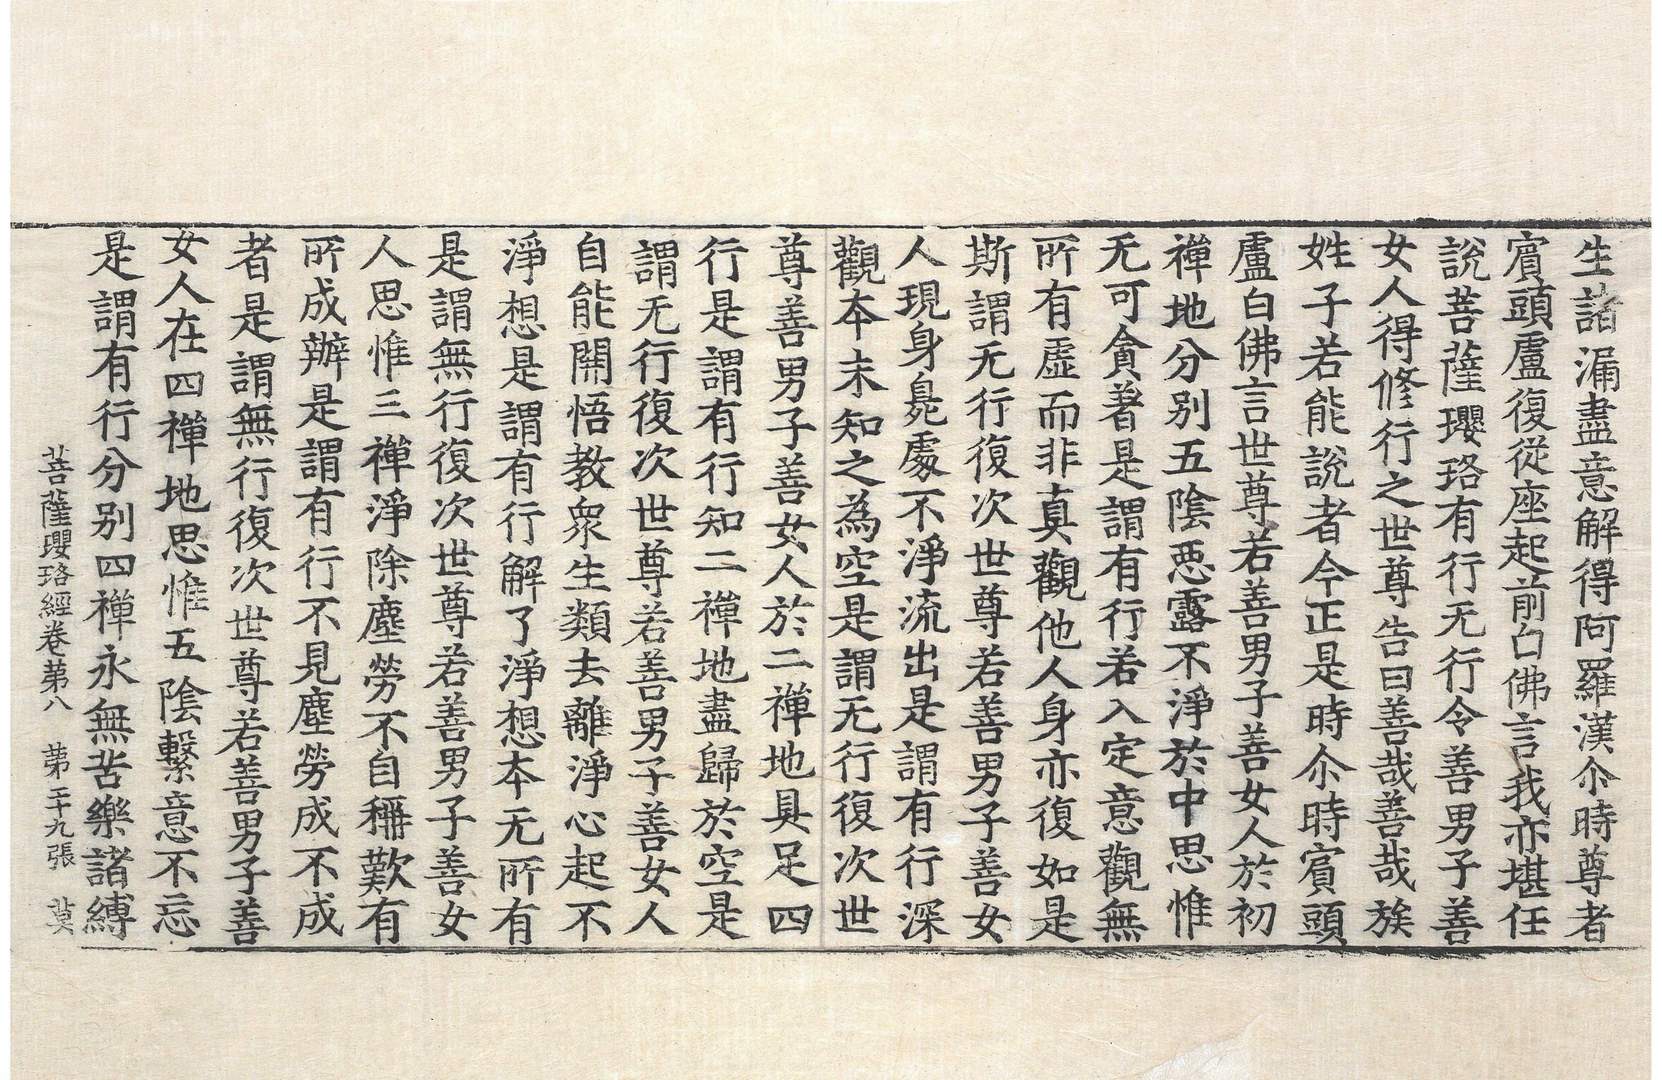 生諸漏盡意解得阿羅漢尒時尊者
賔頭盧復從座起前白佛言我亦堪任
說菩薩瓔珞有行无行令善男子善
女人得修行之世尊告曰善哉善哉族
姓子若能說者今正是時尒時賔頭
盧白佛言世尊若善男子善女人於初
禪地分別五陰惡露不淨於中思惟
无可貪著是謂有行若入定意觀無
所有虛而非真觀他人身亦復如是
斯謂无行復次世尊若善男子善女
人現身臰處不淨流出是謂有行深
觀本末知之為空是謂无行復次世
尊善男子善女人於二禪地具足四
行是謂有行知二禪地盡歸於空是
謂无行復次世尊若善男子善女人
自能開悟教衆生類去離淨心起不
淨想是謂有行解了淨想本无所有
是謂無行復次世尊若善男子善女
人思惟三禪淨除塵勞不自稱歎有
所成辦是謂有行不見塵勞成不成
者是謂無行復次世尊若善男子善
女人在四禪地思惟五陰繫意不忘
是謂有行分別四禪永無苦樂諸縛
菩薩瓔珞經卷第八　第二十九張　莫